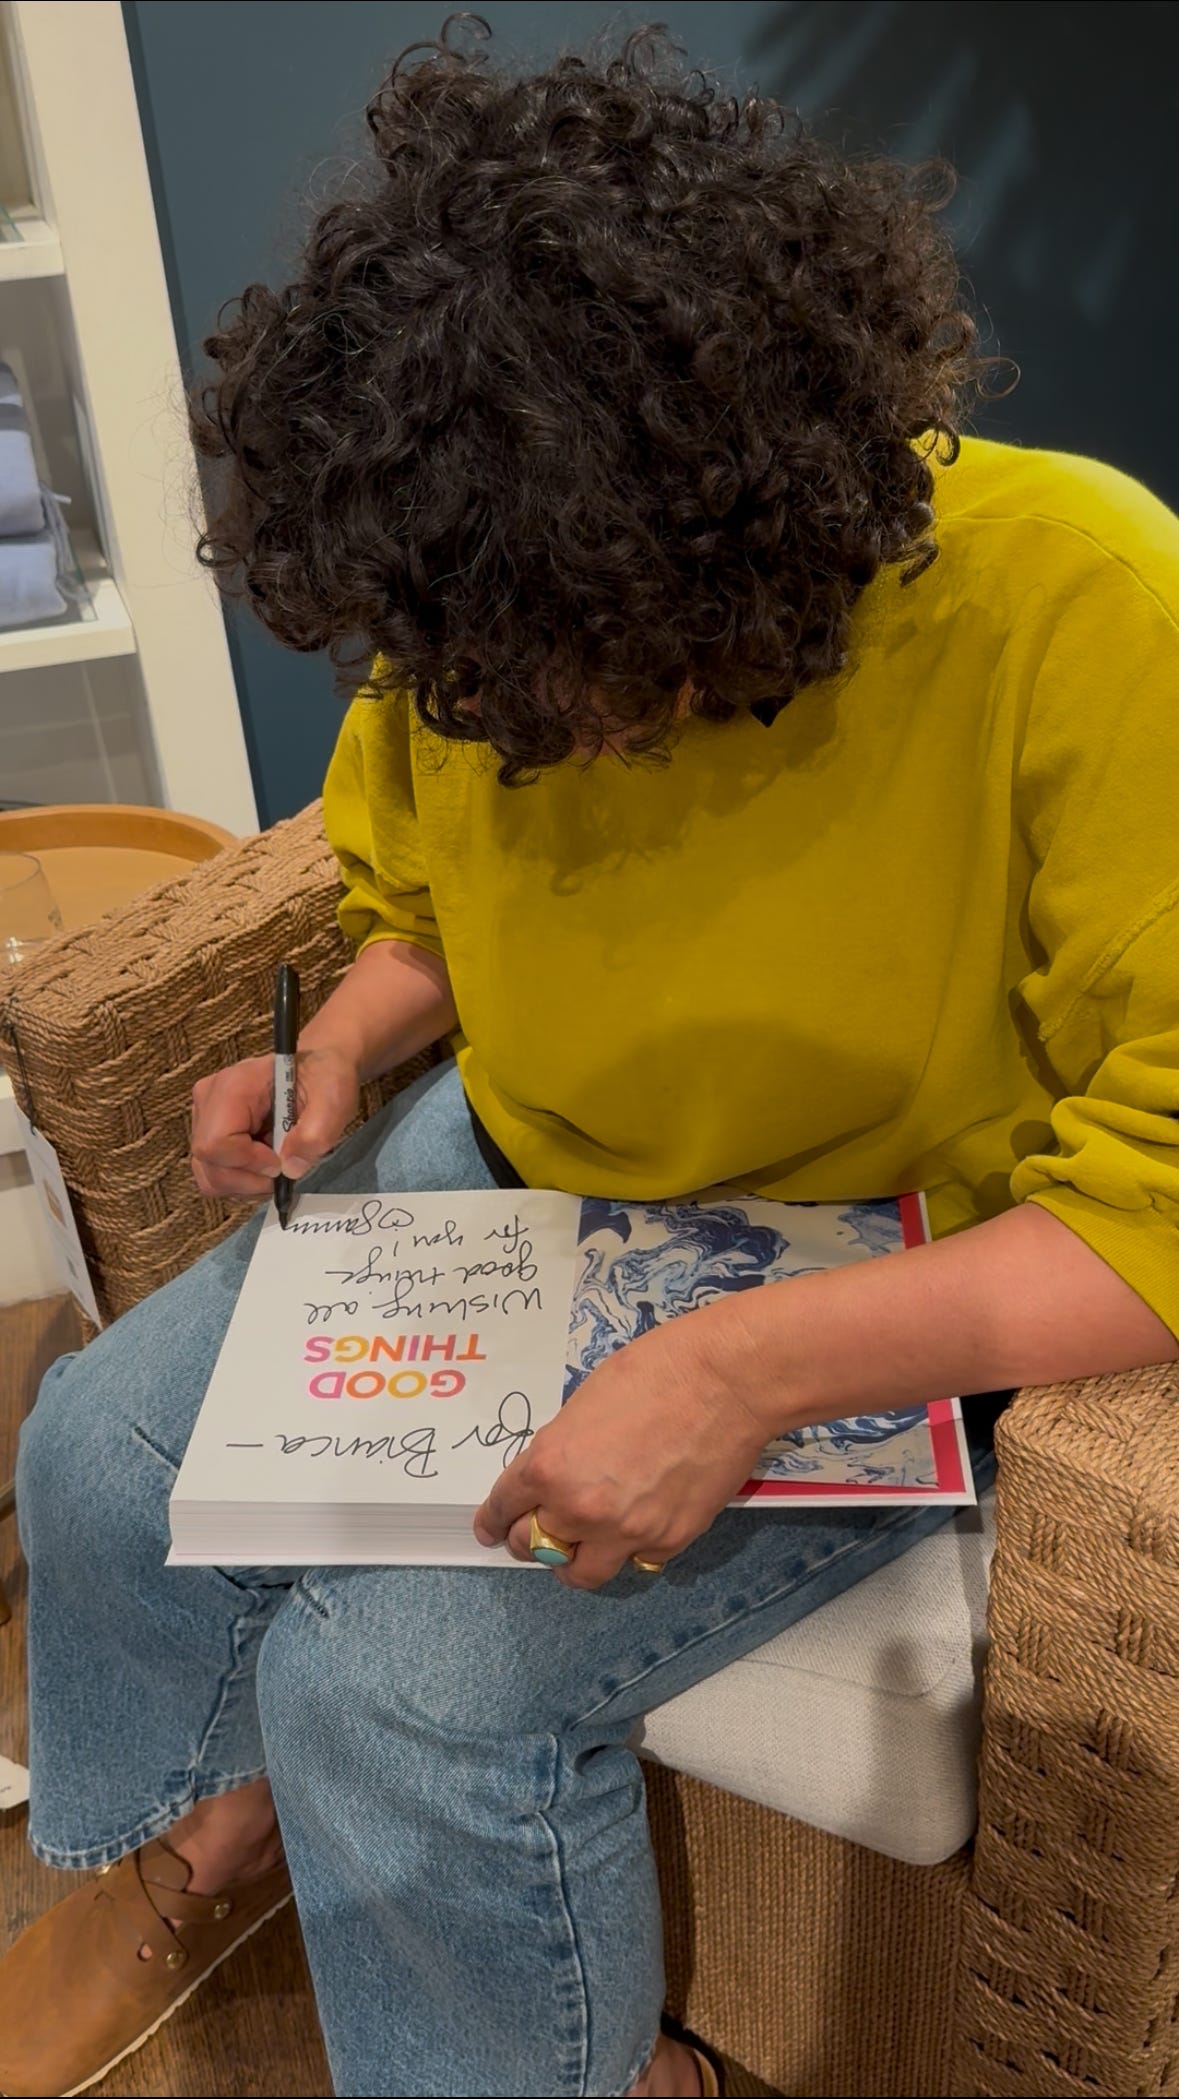 For Bianca —
GOOD
THINGS
Wishing all
good things
for you!
Sharpie